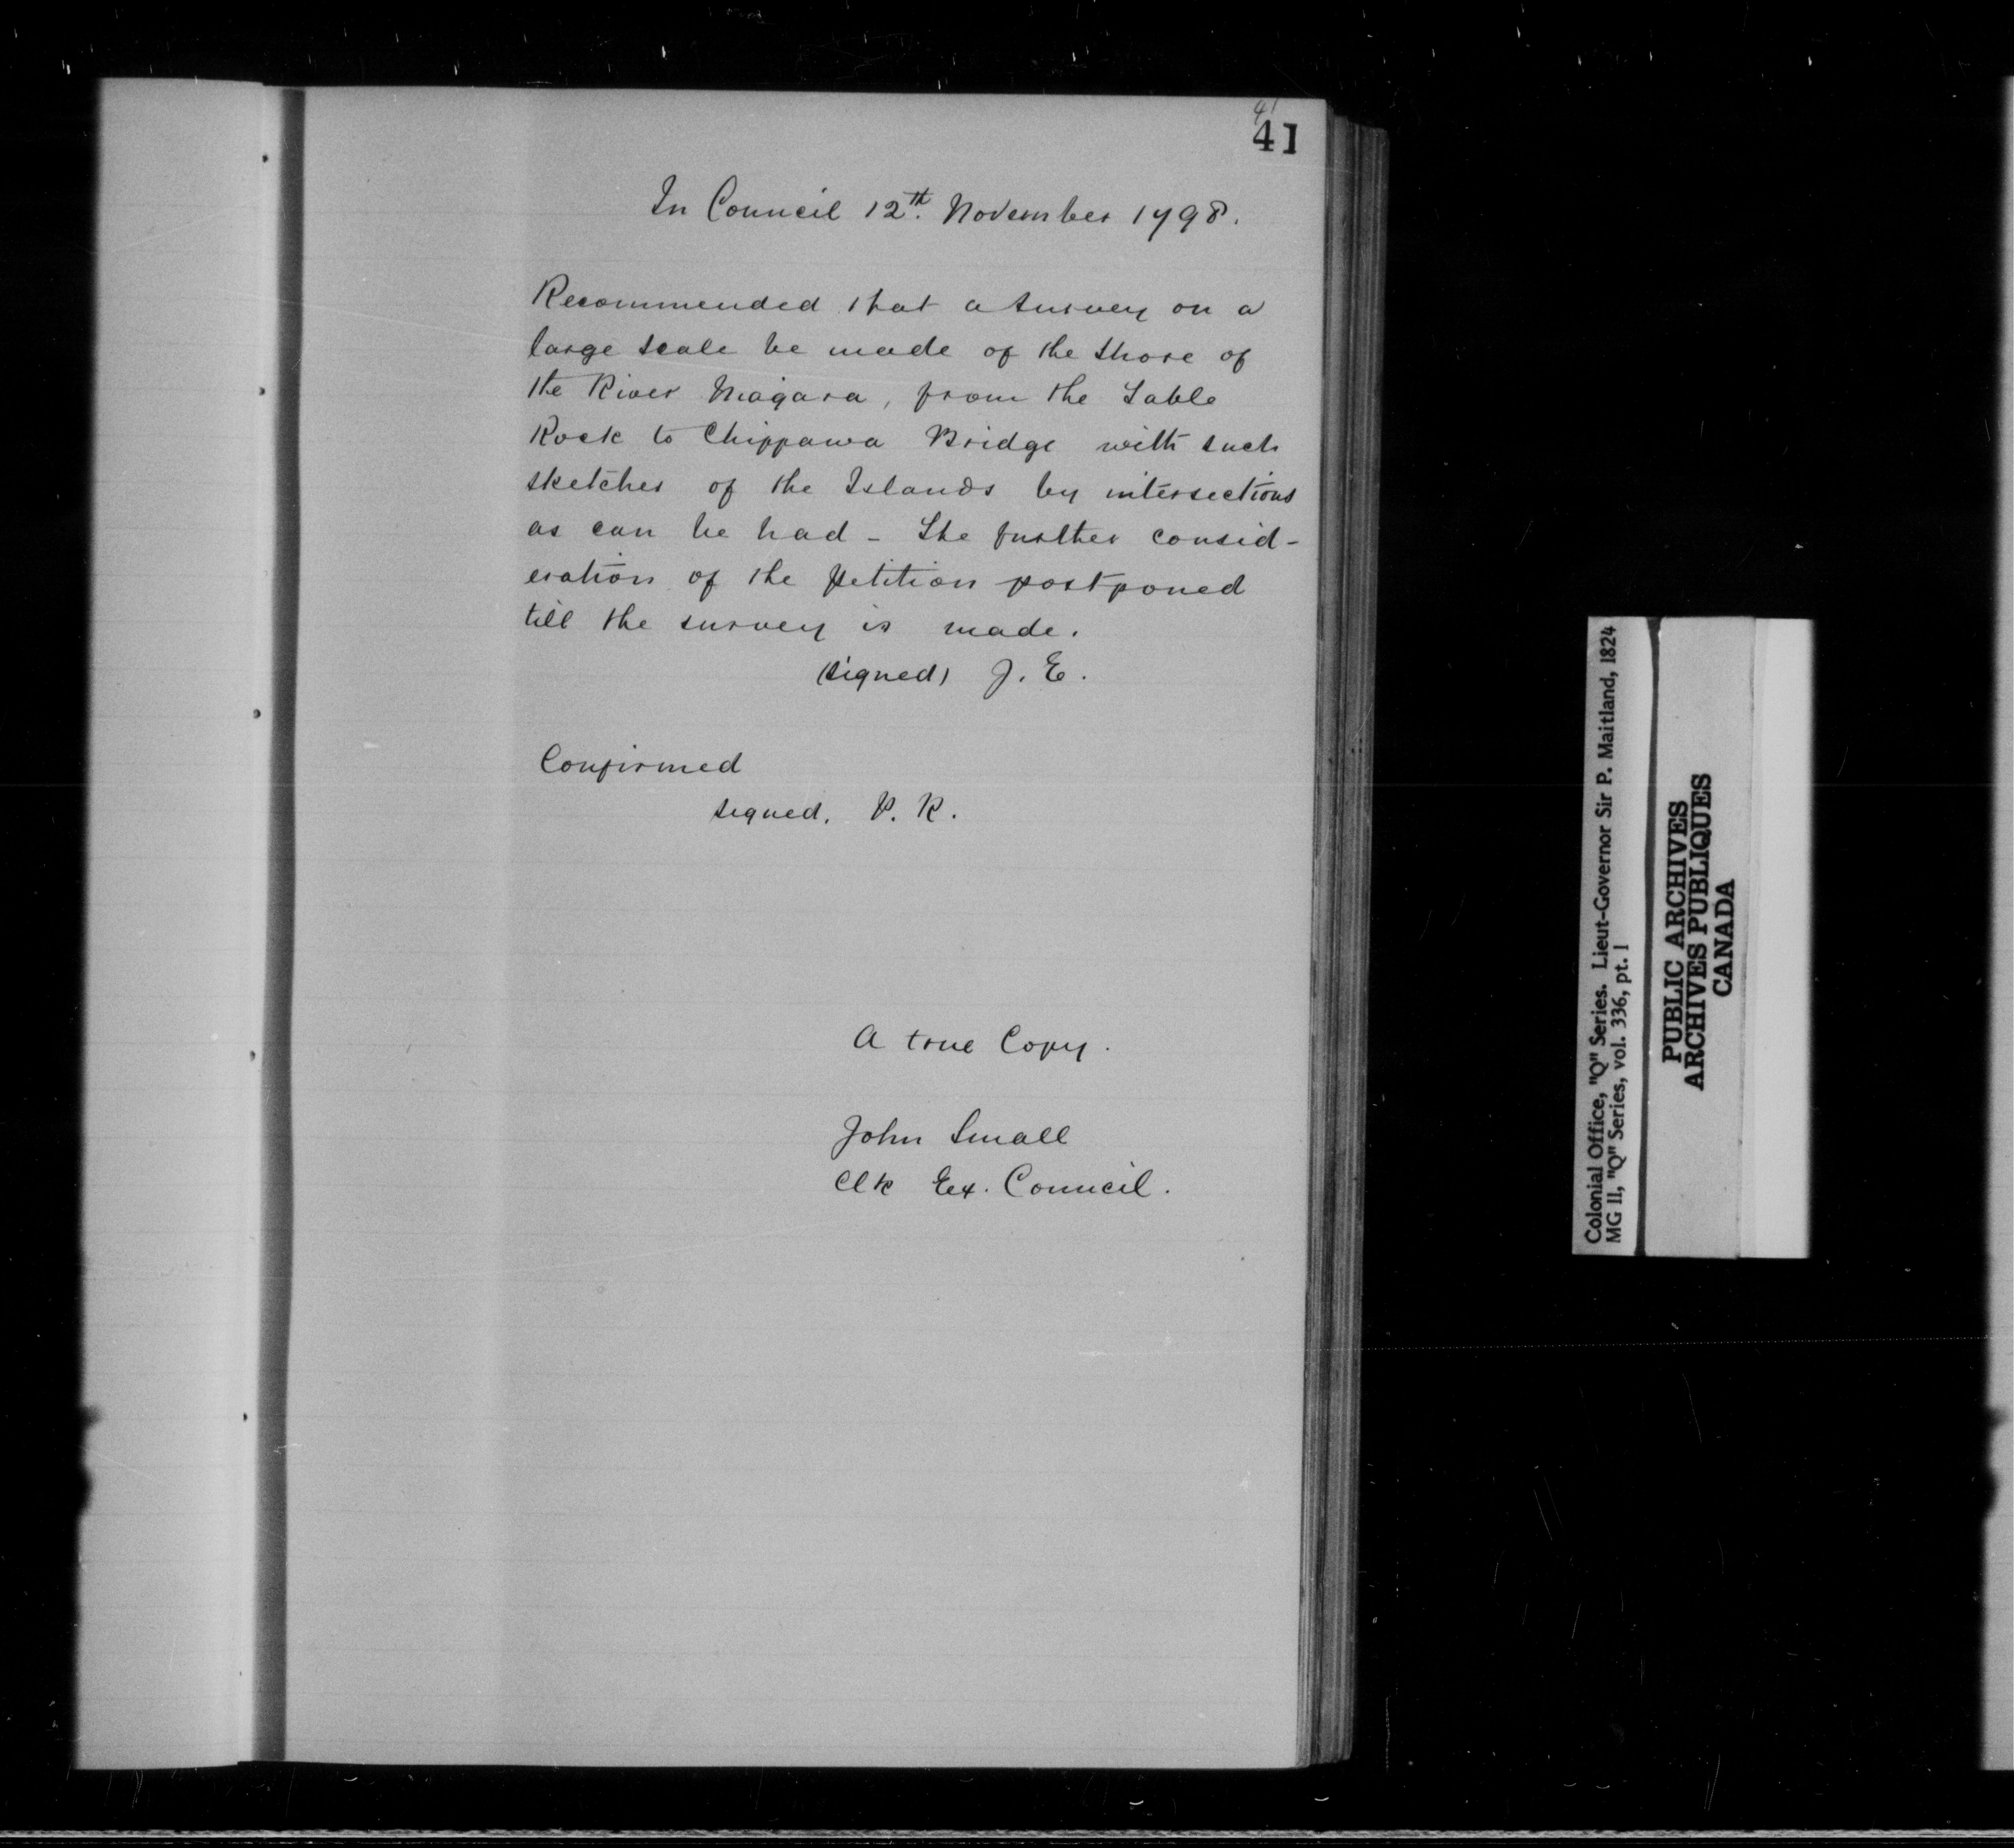 41
41
In Council 12th. November 1798.
Recommended that a Survey on a
large scale be made of the Shore of
the River Niagara, from the Table
Rock to Chippawa Bridge with such
sketches of the Islands by intersections
as can be had - The further consid-
eration of the Petition postponed
till the survey is made.
(signed) J. E.
Confirmed
signed. P. R.
A true Copy.
John Small
Clk Ex. Council.
Colonial Office, "Q" Series. Lieut-Governor Sir P. Maitland, 1824
MG 11, "Q" Series, vol. 336, pt. 1
PUBLIC ARCHIVES
ARCHIVES PUBLIQUES
CANADA